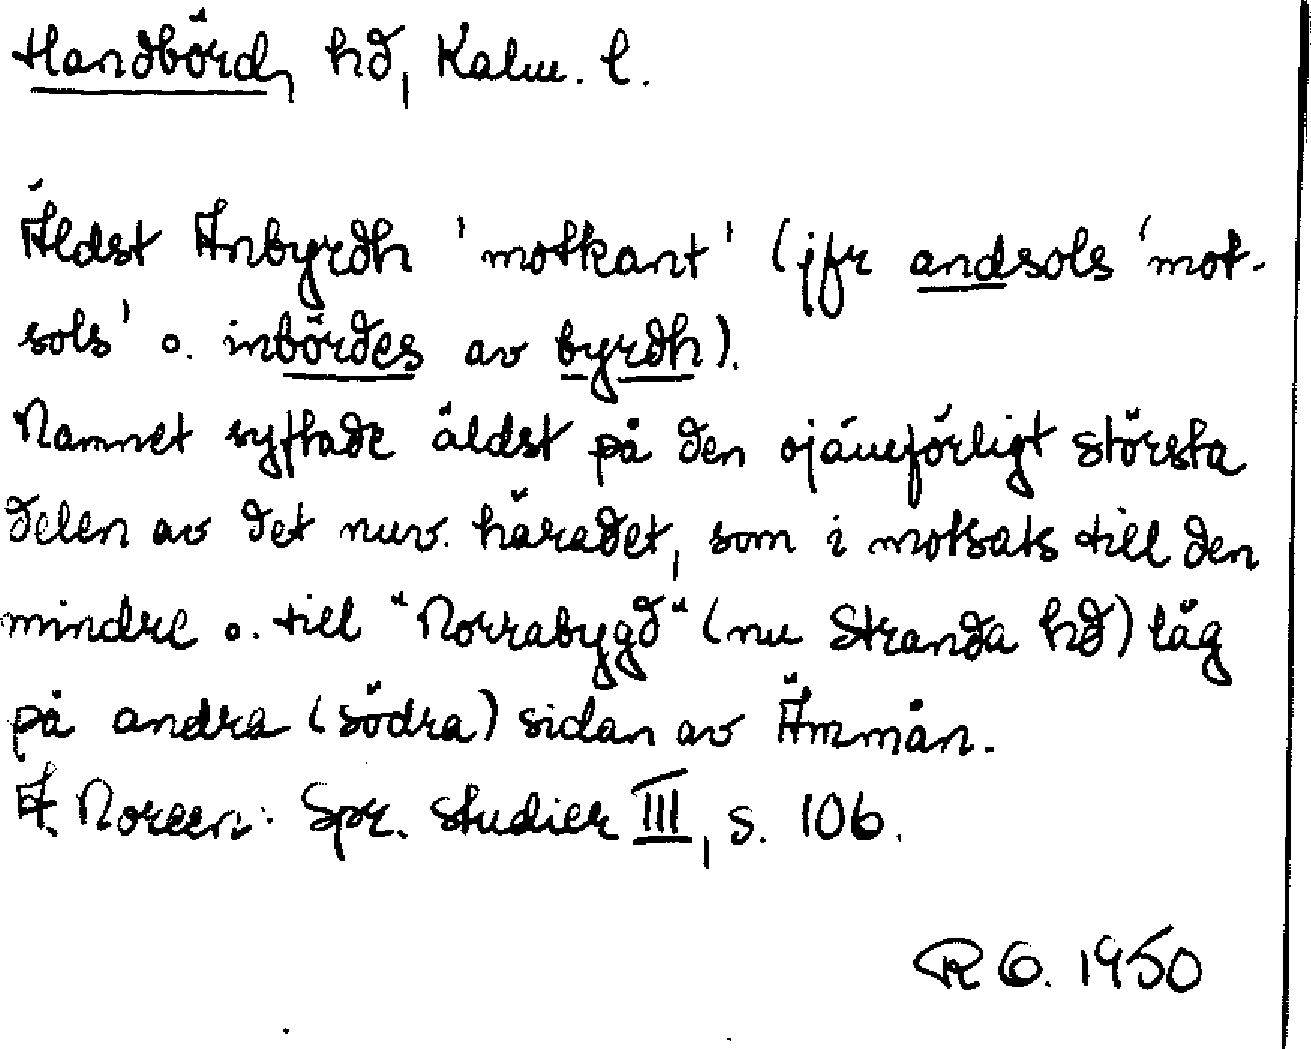 Handbörd, hd, Kalm. l.
Äldst Anbyrdh 'motkant' (jfr andsols 'mot-
sols' o. inbördes av byrdh).
Namnet syftade äldst på den ojämförligt största
delen av det nuv. häradet, som i motsats till den
mindre o. till "Norrabygd" (nu Stranda hd) låg
på andra (södra) sidan av Ämmån.
A. Noreen: Spr. studier III, s. 106.
R G. 1950